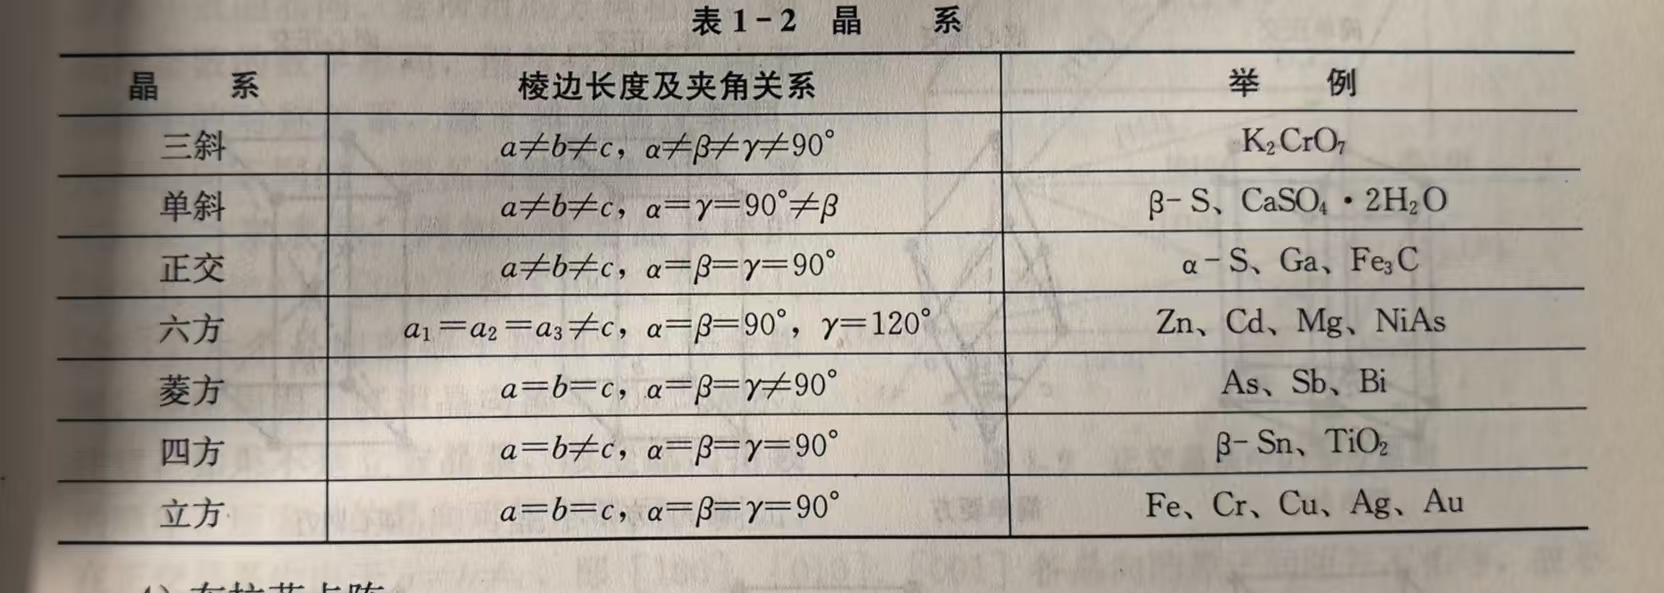 表1-2 晶 系
晶 系 棱边长度及夹角关系 举 例
三斜 a≠b≠c, α≠β≠γ≠90° K₂CrO₇
单斜 a≠b≠c, α=γ=90°≠β β-S、CaSO₄·2H₂O
正交 a≠b≠c, α=β=γ=90° α-S、Ga、Fe₃C
六方 a₁=a₂=a₃≠c, α=β=90°, γ=120° Zn、Cd、Mg、NiAs
菱方 a=b=c, α=β=γ≠90° As、Sb、Bi
四方 a=b≠c, α=β=γ=90° β-Sn、TiO₂
立方 a=b=c, α=β=γ=90° Fe、Cr、Cu、Ag、Au